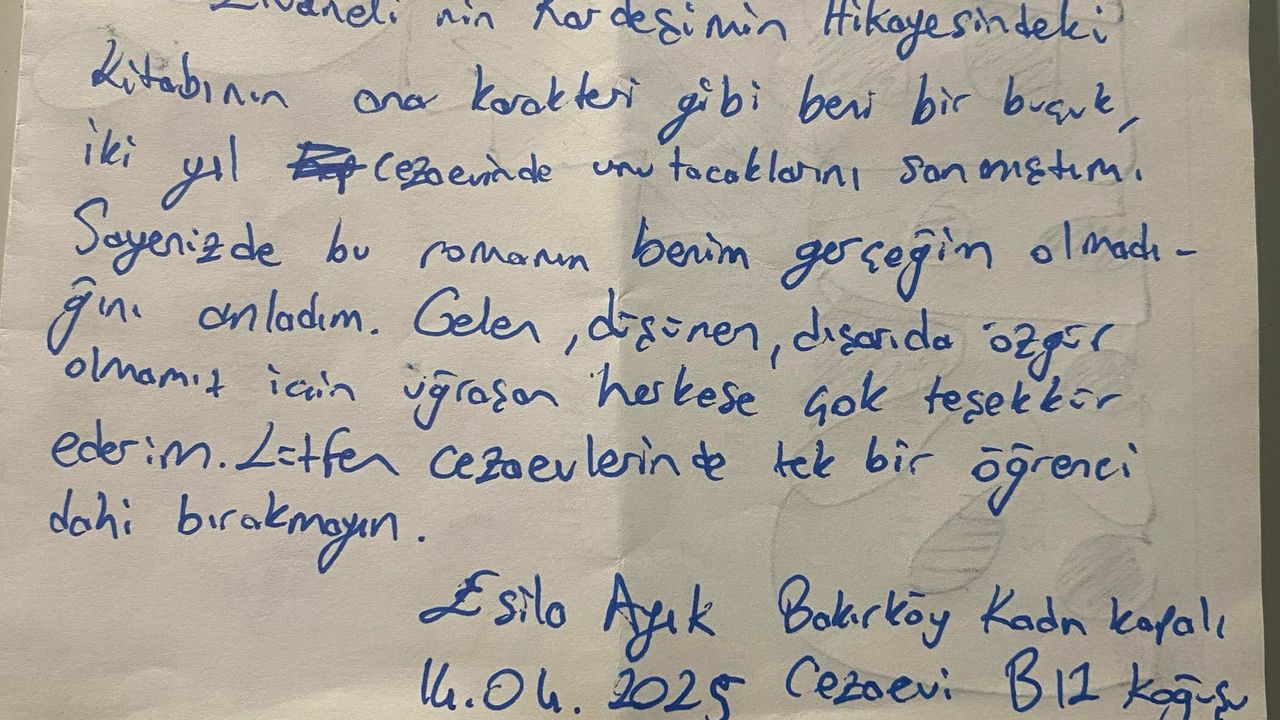 Livaneli'nin Kardeşimin Hikayesindeki
Kitabının ana karakteri gibi beni bir buçuk,
iki yıl cezaevinde unutacaklarını sanmıştım.
Sayenizde bu romanın benim gerçeğim olmadı-
ğını anladım. Gelen, düşünen, dışarıda özgür
olmamız için uğraşan herkese çok teşekkür
ederim. Lütfen cezaevlerinde tek bir öğrenci
dahi bırakmayın.
Esila Ayık Bakırköy Kadın Kapalı
14.04.2025 Cezaevi B12 Koğuşu